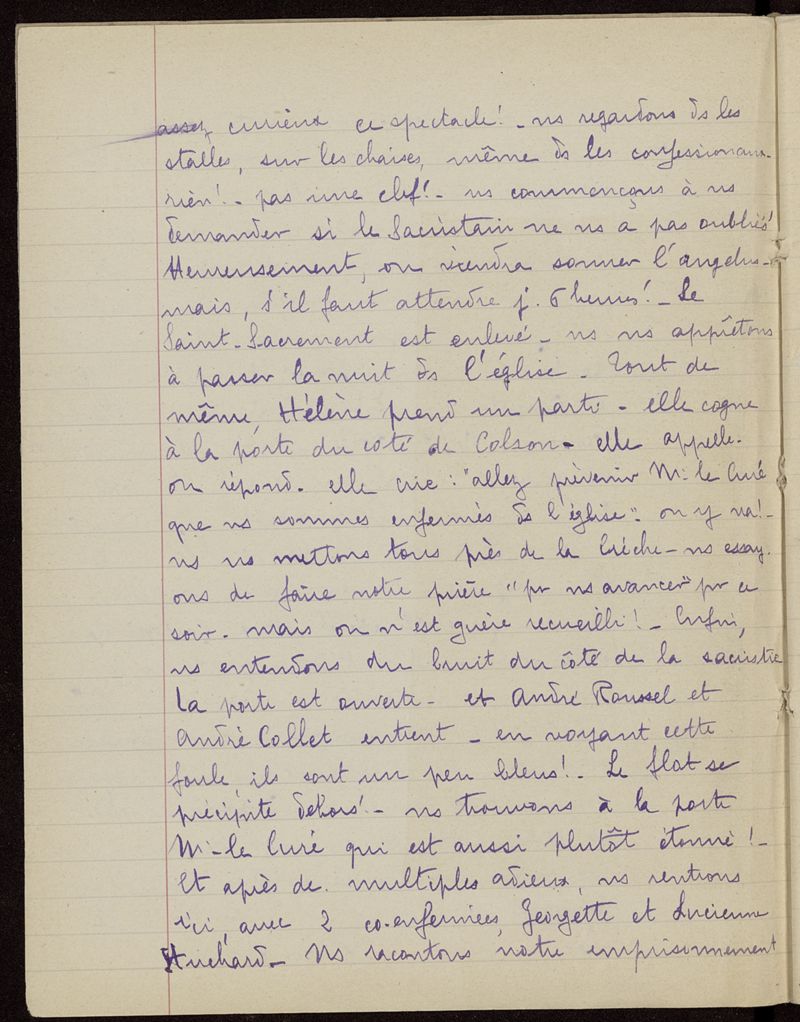 assez curieux ce spectacle! - ns regardons ds les
stalles, sur les chaises, même ds les confessionaux -
rien! - pas une clef! - ns commençons à ns
demander si le Sacristain ne ns a pas oubliés!
Heureusement, on viendra sonner l'angelus -
mais, s'il faut attendre j. 6 heures! - Le
Saint-Sacrement est enlevé - ns ns apprêtons
à passer la nuit ds l'église - Tout de
même, Hélène prend un parti - elle cogne
à la porte du coté de Colson - elle appelle.
on répond. elle crie: "allez prévenir Mr le Curé
que ns sommes enfermés ds l'église". on y va! -
ns ns mettons tous près de la Crêche - ns essay.
ons de faire notre prière "pr ns avancer" pr ce
soir. mais on n'est guère recueilli! - Enfin,
ns entendons du bruit du côté de la sacristie
La porte est ouverte - et André Roussel et
André Collet entrent - en voyant cette
foule, ils sont un peu bleus! - Le flot se
précipite dehors! - ns trouvons à la porte
Mr-le Curé qui est aussi plutôt étonné! -
Et après de multiples adieux, ns rentrons
ici, avec 2 co-enfermées, Georgette et Lucienne
Huchard - Ns racontons notre emprisonnement